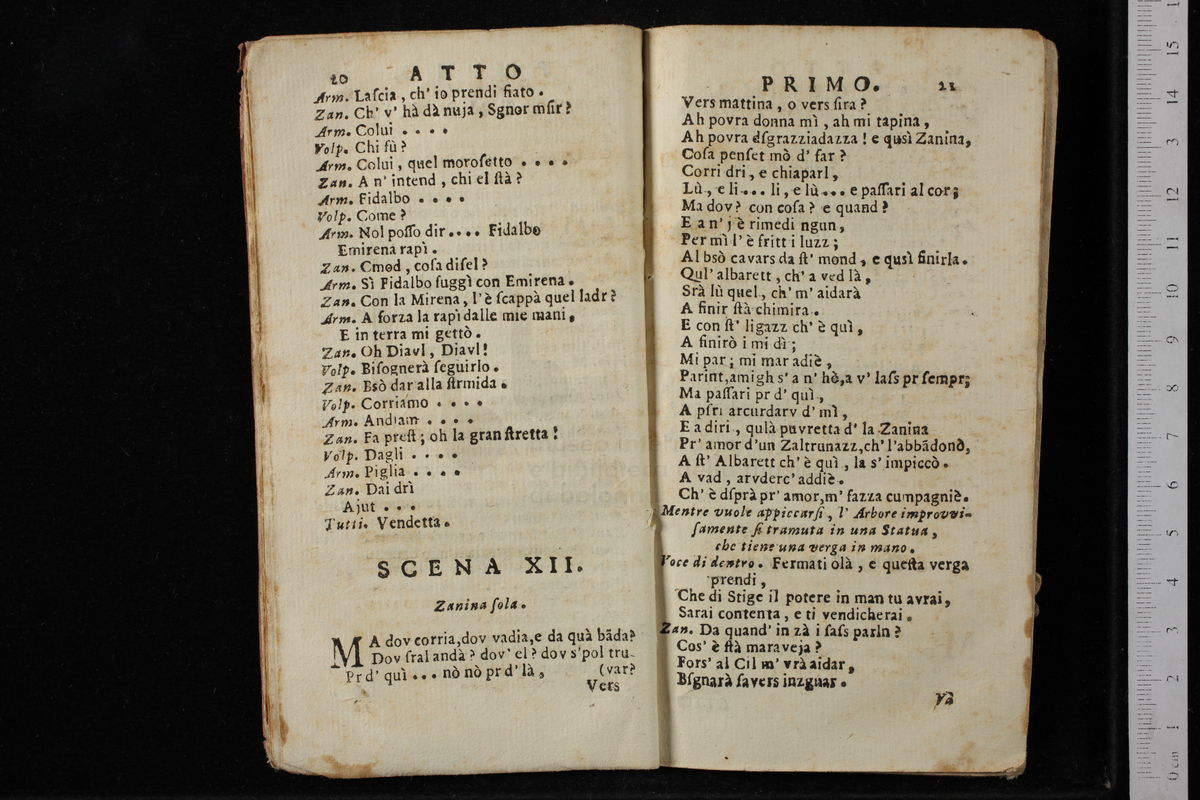 20 ATTO
Arm. Laſcia, ch' io prendi fiato.
Zan. Ch' v' hà dà nuja, Sgnor mſir?
Arm. Colui ....
Volp. Chi fù?
Arm. Colui, quel moroſetto ....
Zan. A n' intend, chi el ſtà?
Arm. Fidalbo ....
Volp. Come?
Arm. Nol poſſo dir.... Fidalbo
Emirena rapì.
Zan. Cmod, coſa diſel?
Arm. Sì Fidalbo fuggì con Emirena.
Zan. Con la Mirena, l'è ſcappà quel ladr?
Arm. A forza la rapì dalle mie mani,
E in terra mi gettò.
Zan. Oh Diavl, Diavl!
Volp. Biſognerà ſeguirlo.
Zan. Bsò dar alla ſtrmida.
Volp. Corriamo ....
Arm. Andiam ....
Zan. Fa preſt; oh la gran ſtretta!
Volp. Dagli ....
Arm. Piglia ....
Zan. Dai drì
Ajut ...
Tutti. Vendetta.
SCENA XII.
Zanina ſola.
MA dov corria, dov vadia, e da quà bāda?
Dov ſral andà? dov' el? dov s'pol tru-
Pr d' quì ... nò nò pr d' là, (var?
Vers
PRIMO. 21
Vers mattina, o vers ſira?
Ah povra donna mì, ah mi tapina,
Ah povra dſgrazziadazza! e qusì Zanina,
Coſa penſet mò d' far?
Corri dri, e chiaparl,
Lù, e li... li, e lù... e paſſari al cor;
Ma dov? con coſa? e quand?
E a n' j è rimedi ngun,
Per mì l' è fritt i luzz;
Al bsò cavars da ſt' mond, e qusì finirla.
Qul' albarett, ch' a ved là,
Srà lù quel, ch' m' aidarà
A finir ſtà chimira.
E con ſt' ligazz ch' è quì,
A finirò i mi dì;
Mi par; mi mar adiè,
Parint, amigh s' a n' hò, a v' laſs pr ſempr;
Ma paſſari pr d' quì,
A pſri arcurdarv d' mì,
E a diri, qulà puvretta d' la Zanina
Pr' amor d'un Zaltrunazz, ch' l'abbādonò,
A ſt' Albarett ch' è quì, la s' impiccò.
A vad, arvderc' addiè.
Ch' è dſprà pr' amor, m' fazza cumpagniè.
Mentre vuole appiccarſi, l' Arbore improvvi-
ſamente ſi tramuta in una Statua,
che tiene una verga in mano.
Voce di dentro. Fermati olà, e queſta verga
prendi,
Che di Stige il potere in man tu avrai,
Sarai contenta, e ti vendicherai.
Zan. Da quand' in zà i ſaſs parln?
Cos' è ſtà maraveja?
Fors' al Cil m' vrà aidar,
Bſgnarà ſavers inzgnar.
Và